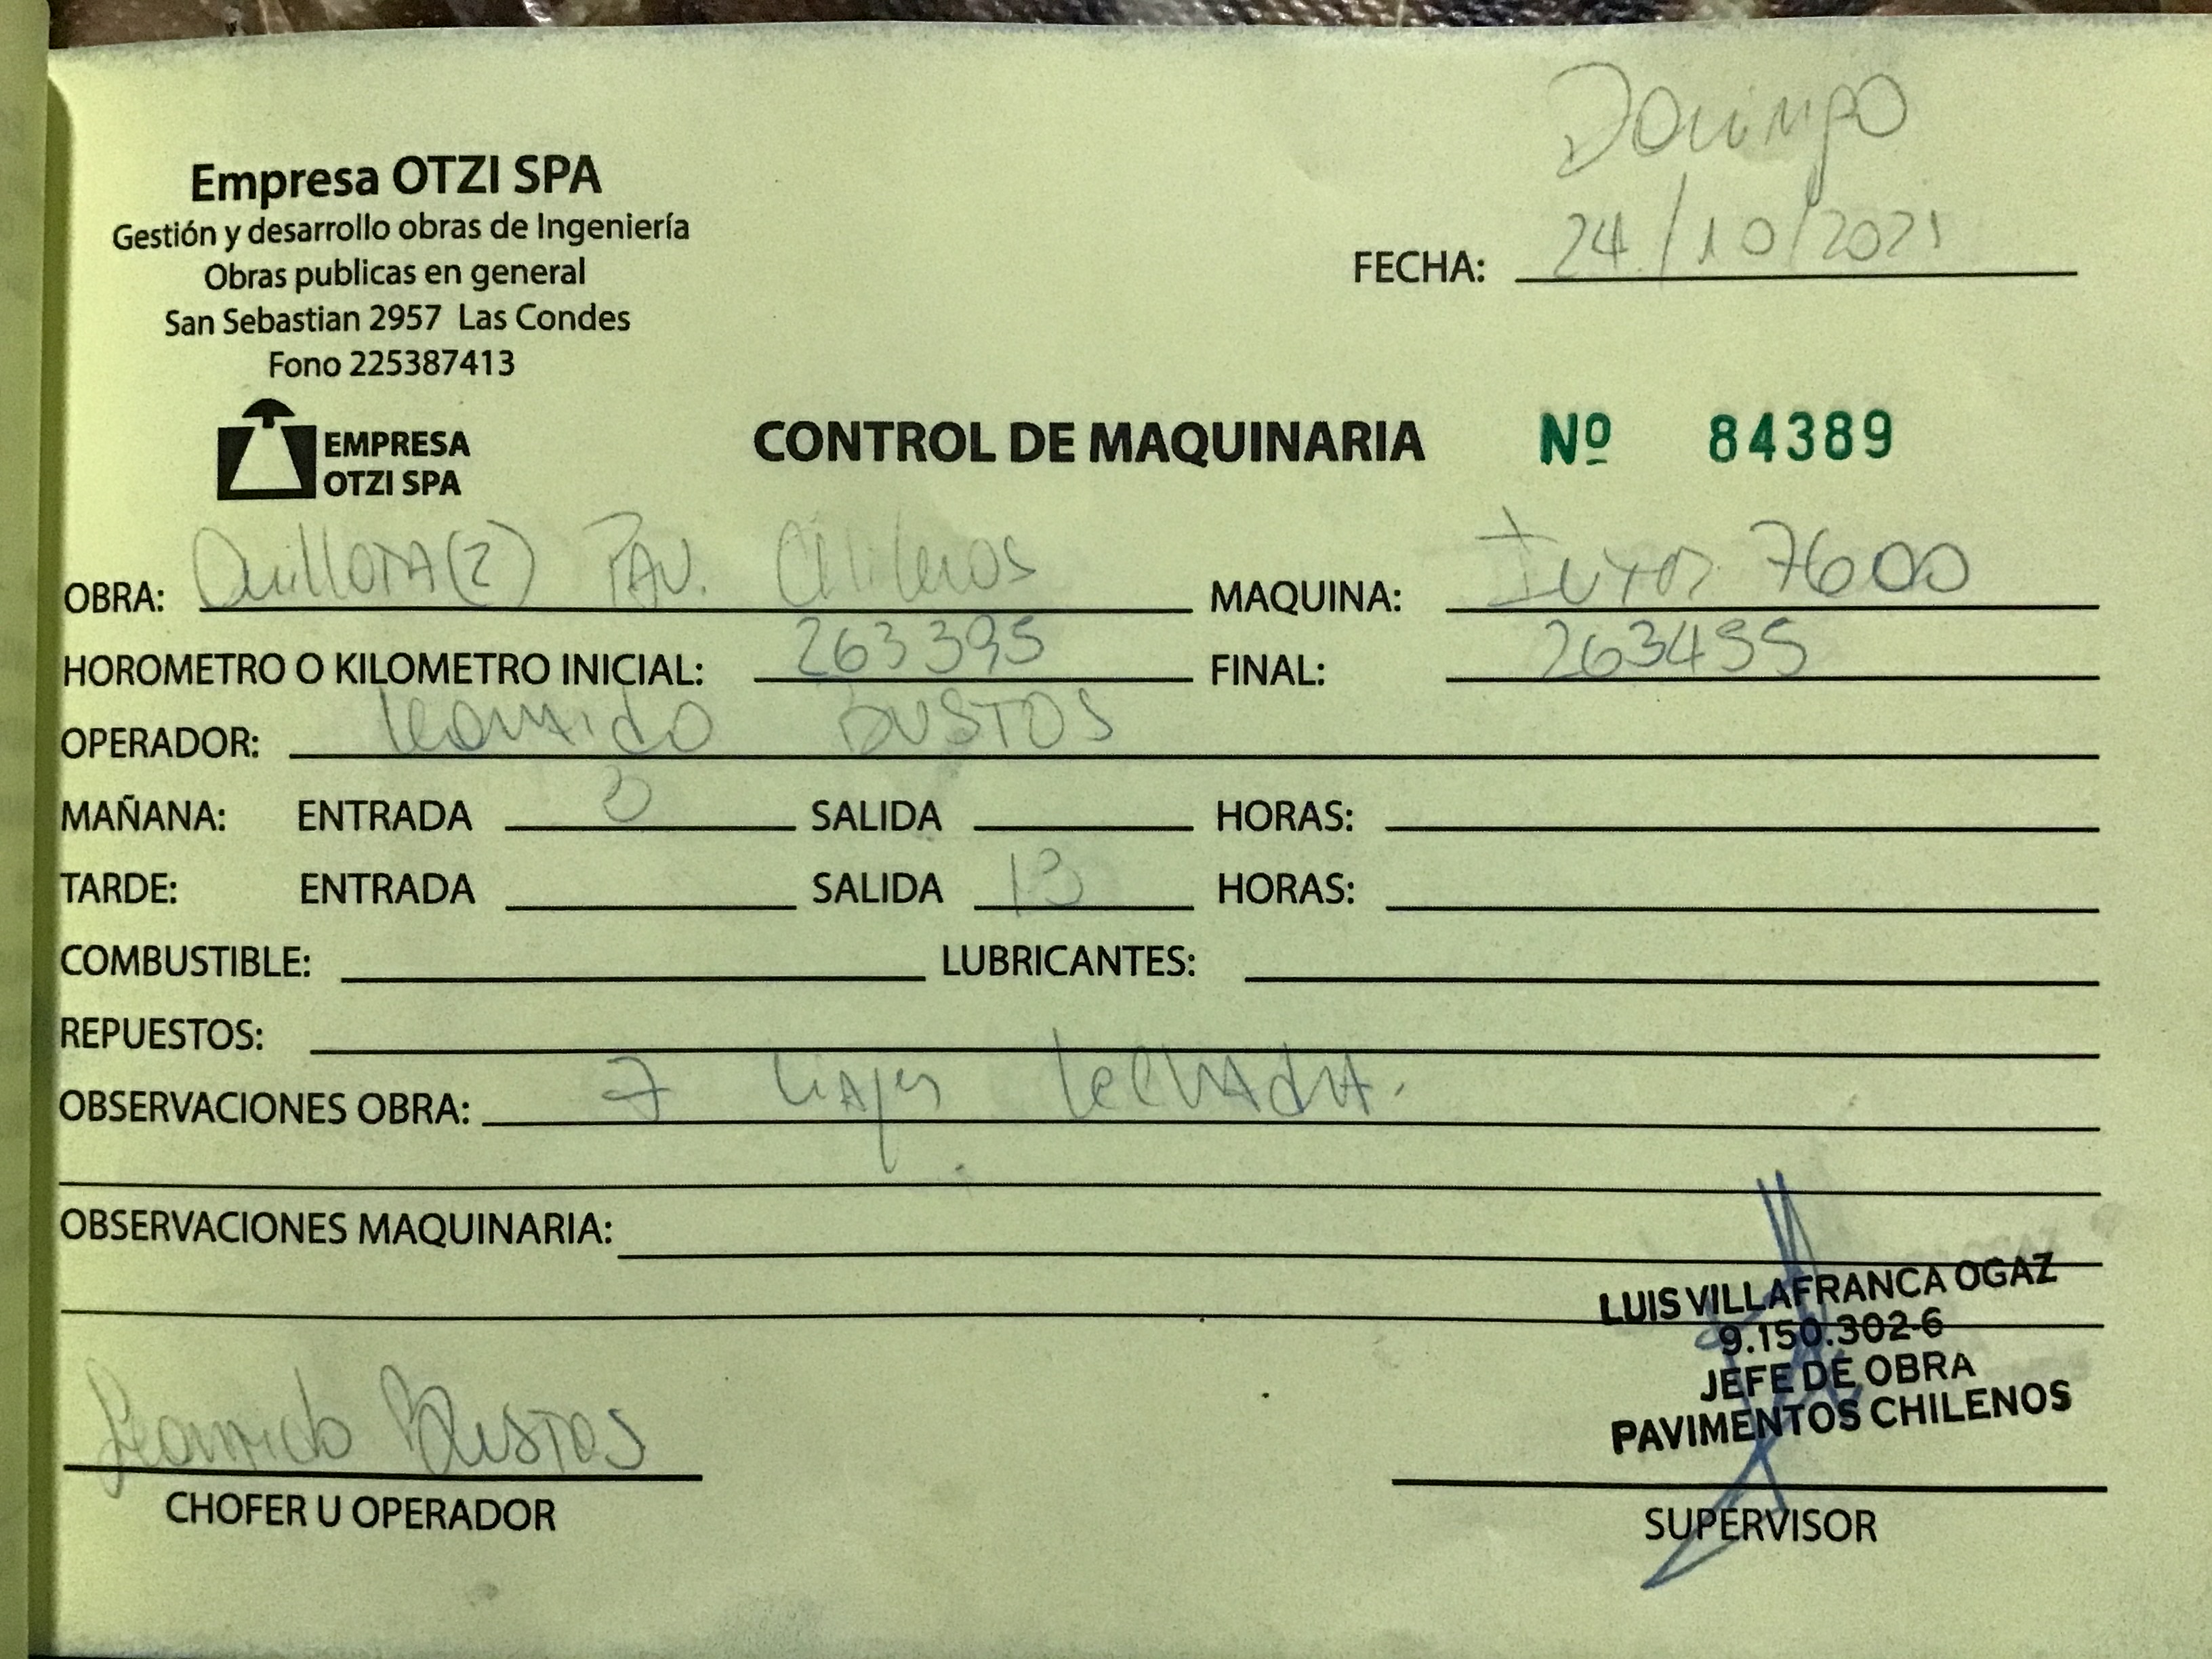 Domingo
Empresa OTZI SPA
Gestión y desarrollo obras de Ingeniería
Obras publicas en general
San Sebastian 2957 Las Condes
Fono 225387413
FECHA: 24/10/2021
EMPRESA
OTZI SPA
CONTROL DE MAQUINARIA Nº 84389
OBRA: Quillota (2) Pav. Chilenos MAQUINA: 7600
HOROMETRO O KILOMETRO INICIAL: 263395 FINAL: 263455
OPERADOR: Leonardo BUSTOS
MAÑANA: ENTRADA SALIDA HORAS:
TARDE: ENTRADA SALIDA 13 HORAS:
COMBUSTIBLE: LUBRICANTES:
REPUESTOS:
OBSERVACIONES OBRA: 7 viajes
OBSERVACIONES MAQUINARIA:
LUIS VILLAFRANCA OGAZ
9.150.302-6
JEFE DE OBRA
PAVIMENTOS CHILENOS
Leonardo Bustos
CHOFER U OPERADOR
SUPERVISOR